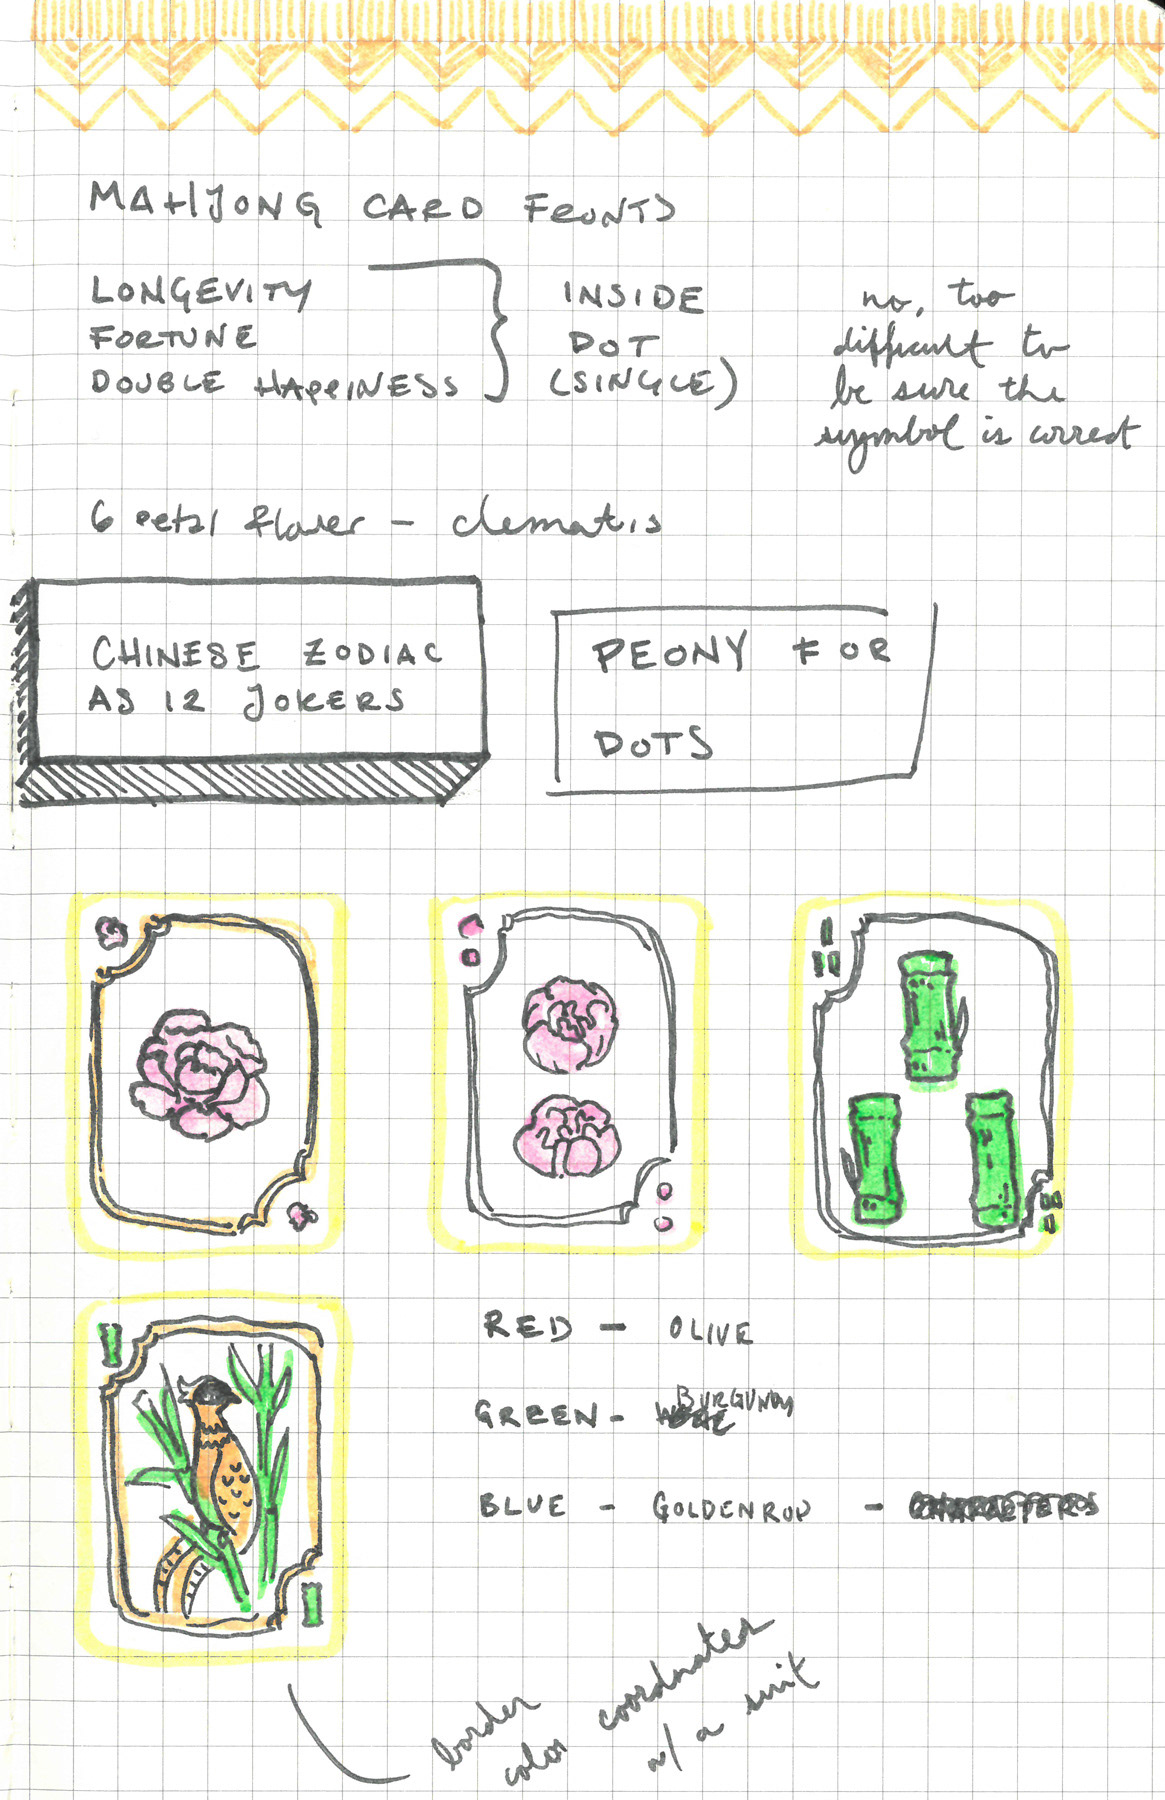 MAHJONG CARD FRONTS
LONGEVITY
FORTUNE
DOUBLE HAPPINESS
INSIDE
DOT
(SINGLE)
no, too
difficult to
be sure the
symbol is correct
6 petal flower - clematis
CHINESE ZODIAC
AS 12 JOKERS
PEONY FOR
DOTS
RED - OLIVE
GREEN - BURGUNDY
BLUE - GOLDENROD -
border
color coordinated
w/ a suit